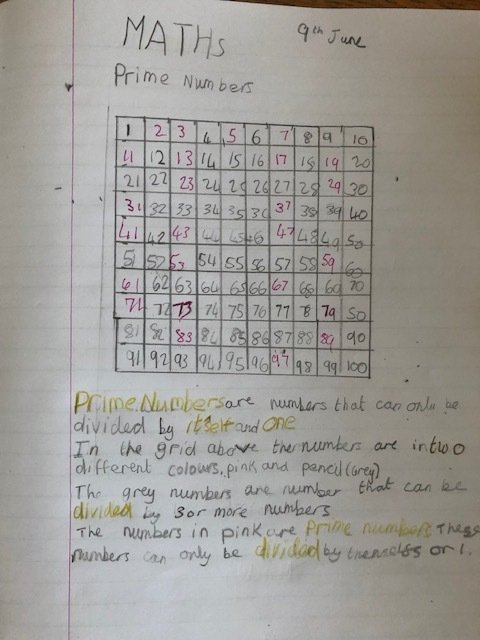 MATHs
9th June
Prime Numbers
1 2 3 4 5 6 7 8 9 10
11 12 13 14 15 16 17 18 19 20
21 22 23 24 25 26 27 28 29 30
31 32 33 34 35 36 37 38 39 40
41 42 43 44 45 46 47 48 49 50
51 52 53 54 55 56 57 58 59 60
61 62 63 64 65 66 67 68 69 70
71 72 73 74 75 76 77 78 79 50
81 82 83 84 85 86 87 88 89 90
91 92 93 94 95 96 97 98 99 100
Prime Numbers are numbers that can only be
divided by itself and one
In the grid above the numbers are in two
different colours, pink and pencil (grey)
The grey numbers are number that can be
divided by 3 or more numbers
The numbers in pink are Prime numbers These
numbers can only be divided by themselfs or 1.